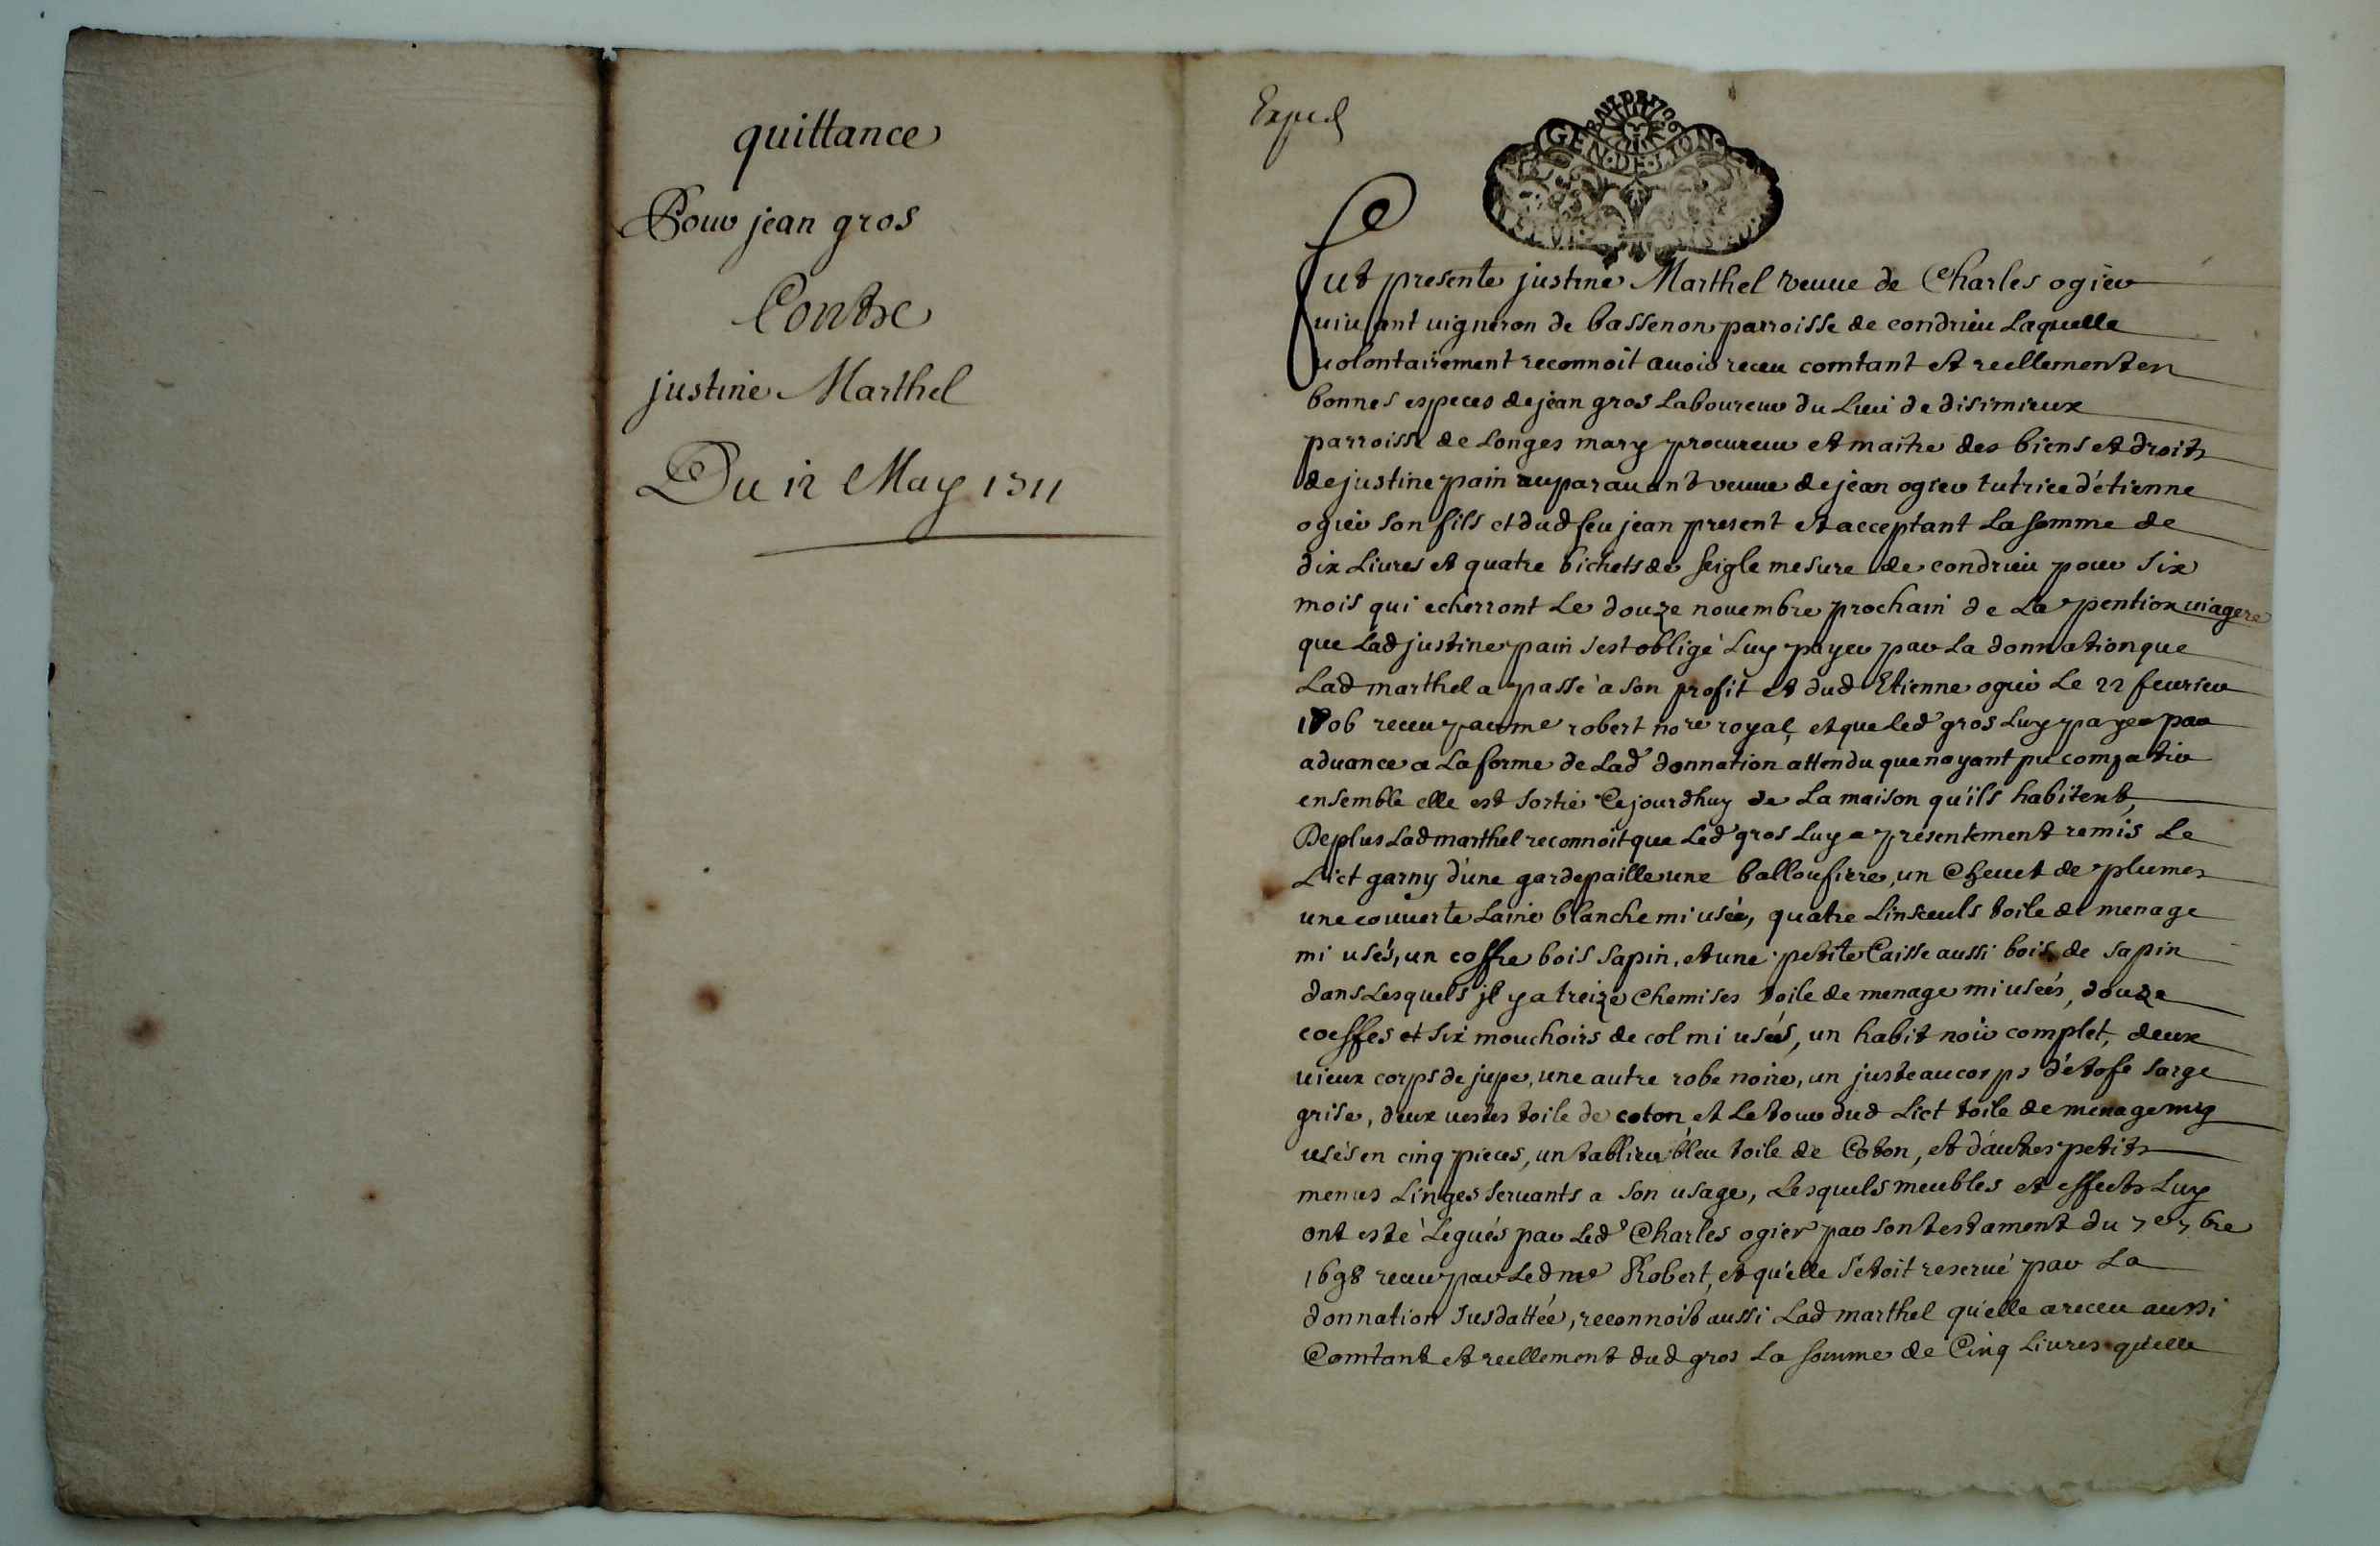 quittance
Pour jean gros
Contre
justine Marthel
Du 12 May 1711
Exped
GEN·DE·LION·
fut presente justine Marthel veuue de Charles ogier
uiuant uigneron de bassenon parroisse de condrieu Laquelle
uolontairement reconnoit auoir receu comtant et reellement en
bonnes especes de jean gros Laboureur du Lieu de disimieux
parroisse de Longes mary procureur et maitre des biens et droits
de justine pain auparauant veuue de jean ogier tutrice d'étienne
ogier son fils et dud feu jean present et acceptant La somme de
dix Liures et quatre bichets de seigle mesure de condrieu pour six
mois qui echerront Le douze nouembre prochain de La pention uiagere
que Lad justine pain s'est obligé Luy payer par La donnation que
Lad marthel a passé a son profit et dud Etienne ogier Le 22 feurier
1706 receu par me robert nore royal, et que led gros Luy paye par
aduance a La forme de Lad donnation attendu que nayant pu compatir
ensemble elle est sortie Cejourdhuy de La maison qu'ils habitent,
De plus Lad marthel reconnoit que Led gros Luy a presentement remis Le
Lict garny d'une gardepaille une balloufiere, un Cheuet de plumes
une couuerte Laine blanche mi usée, quatre Linseuls toile de menage
mi usés, un coffre bois sapin, et une petite Caisse aussi bois de sapin
dans Lesquels jl y a treize Chemises toile de menage mi useés, douze
coeffes et six mouchoirs de col mi usés, un habit noir complet, deux
uieux corps de jupe, une autre robe noire, un justeaucorps d'étofe sarge
grise, deux uestes toile de coton et Le tour dud Lict toile de menage my
usés en cinq pieces, un tablier bleu toile de Coton, et d'autres petits
menus Linges seruants a son usage, Lesquels meubles et effects Luy
ont esté Legués par Led Charles ogier par son testament du 7e 7bre
1698 receu par Led me Robert, et qu'elle s'etoit reserué par La
donnation susdattée, reconnoit aussi Lad marthel qu'elle a receu aussi
Comtant et reellement dud gros La somme de Cinq Liures qu'elle